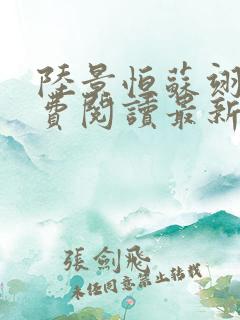 陸景恒蘇翊
費閱讀最新
張劍飛
未經同意禁止轉載